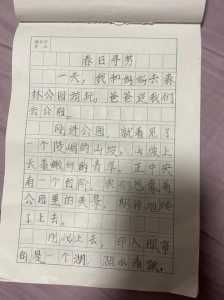 春日寻芳
一天，我和妈妈去森
林公园游玩。爸爸送我们
去公园。
刚进公园，就看见了
一个陡峭的山坡，山坡上
长着嫩绿的青草。正中央
有一个台阶，
公园里的美景，
了上去。
刚爬上去，映入眼帘
的是一个湖，湖水清澈，